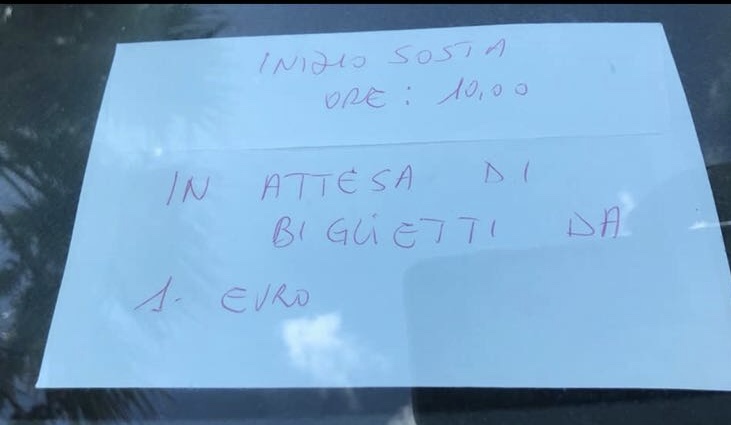 INIZIO SOSTA
ORE: 10,00
IN ATTESA DI
BIGLIETTI DA
1. EURO